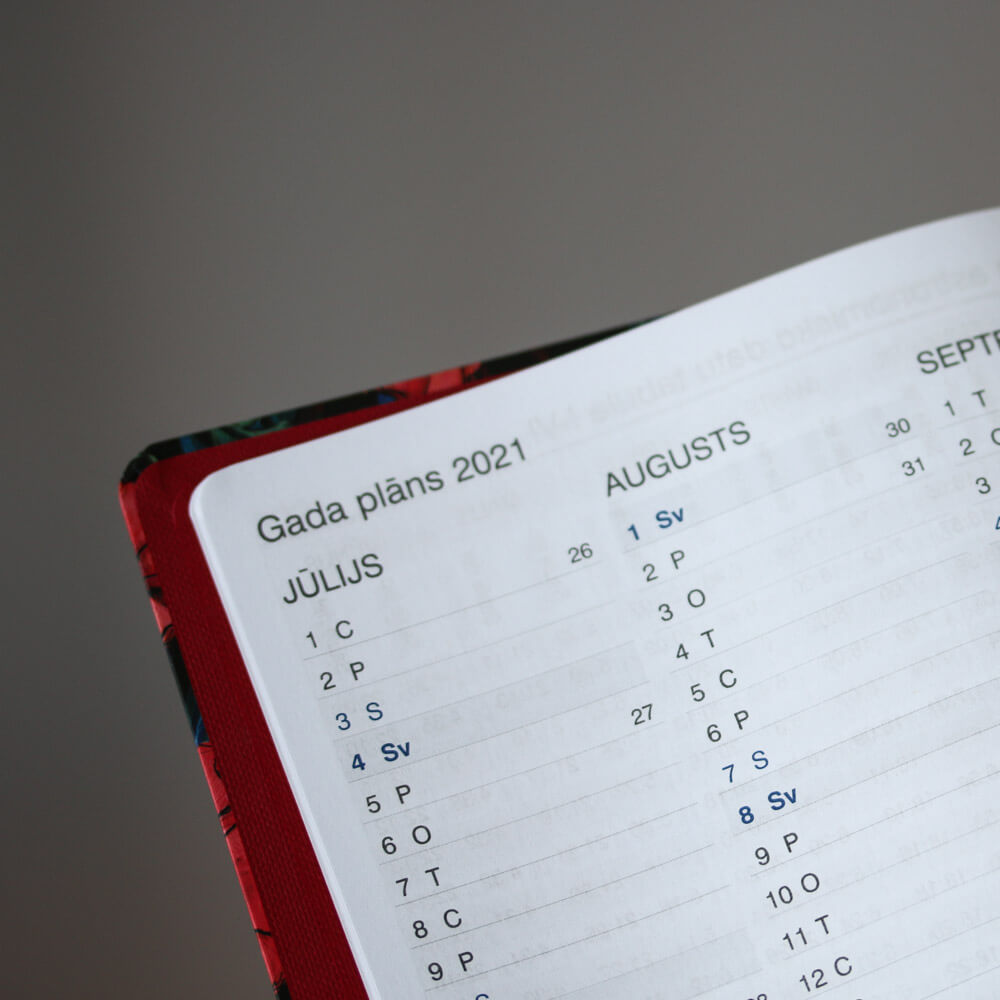 Gada plāns 2021
JŪLIJS 26
1 C
2 P
3 S
4 Sv 27
5 P
6 O
7 T
8 C
9 P
S
AUGUSTS 30
1 Sv 31
2 P
3 O
4 T
5 C
6 P
7 S
8 Sv
9 P
10 O
11 T
12 C
1 T
2 C
3
4